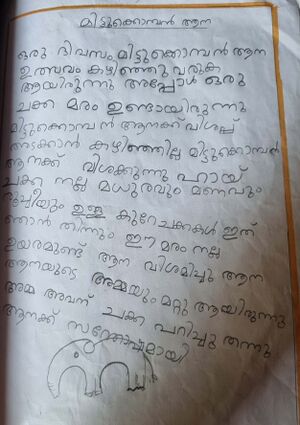 മിട്ടുക്കൊമ്പൻ ആന
ഒരു ദിവസം മിട്ടുക്കൊമ്പൻ ആന
ഉത്സവം കഴിഞ്ഞു വരുക
ആയിരുന്നു അപ്പോൾ ഒരു
ചക്ക മരം ഉണ്ടായിരുന്നു
മിട്ടുക്കൊമ്പൻ ആനക്ക് വിശപ്പ്
അടക്കാൻ കഴിഞ്ഞില്ല മിട്ടുക്കൊമ്പൻ
ആനക്ക് വിശക്കുന്നു ഹായ്
ചക്ക നല്ല മധുരവും മണവും
രുചിയും ഉള്ള കുറേ ചക്കകൾ ഇത്
ഞാൻ തിന്നും ഈ മരം നല്ല
ഉയരമുണ്ട് ആന വിശമിച്ചു ആന
ആനയുടെ അമ്മയും മറ്റു ആയിരുന്നു
അമ്മ അവന് ചക്ക പറിച്ചു തന്നു
ആനക്ക് സന്തോഷമായി